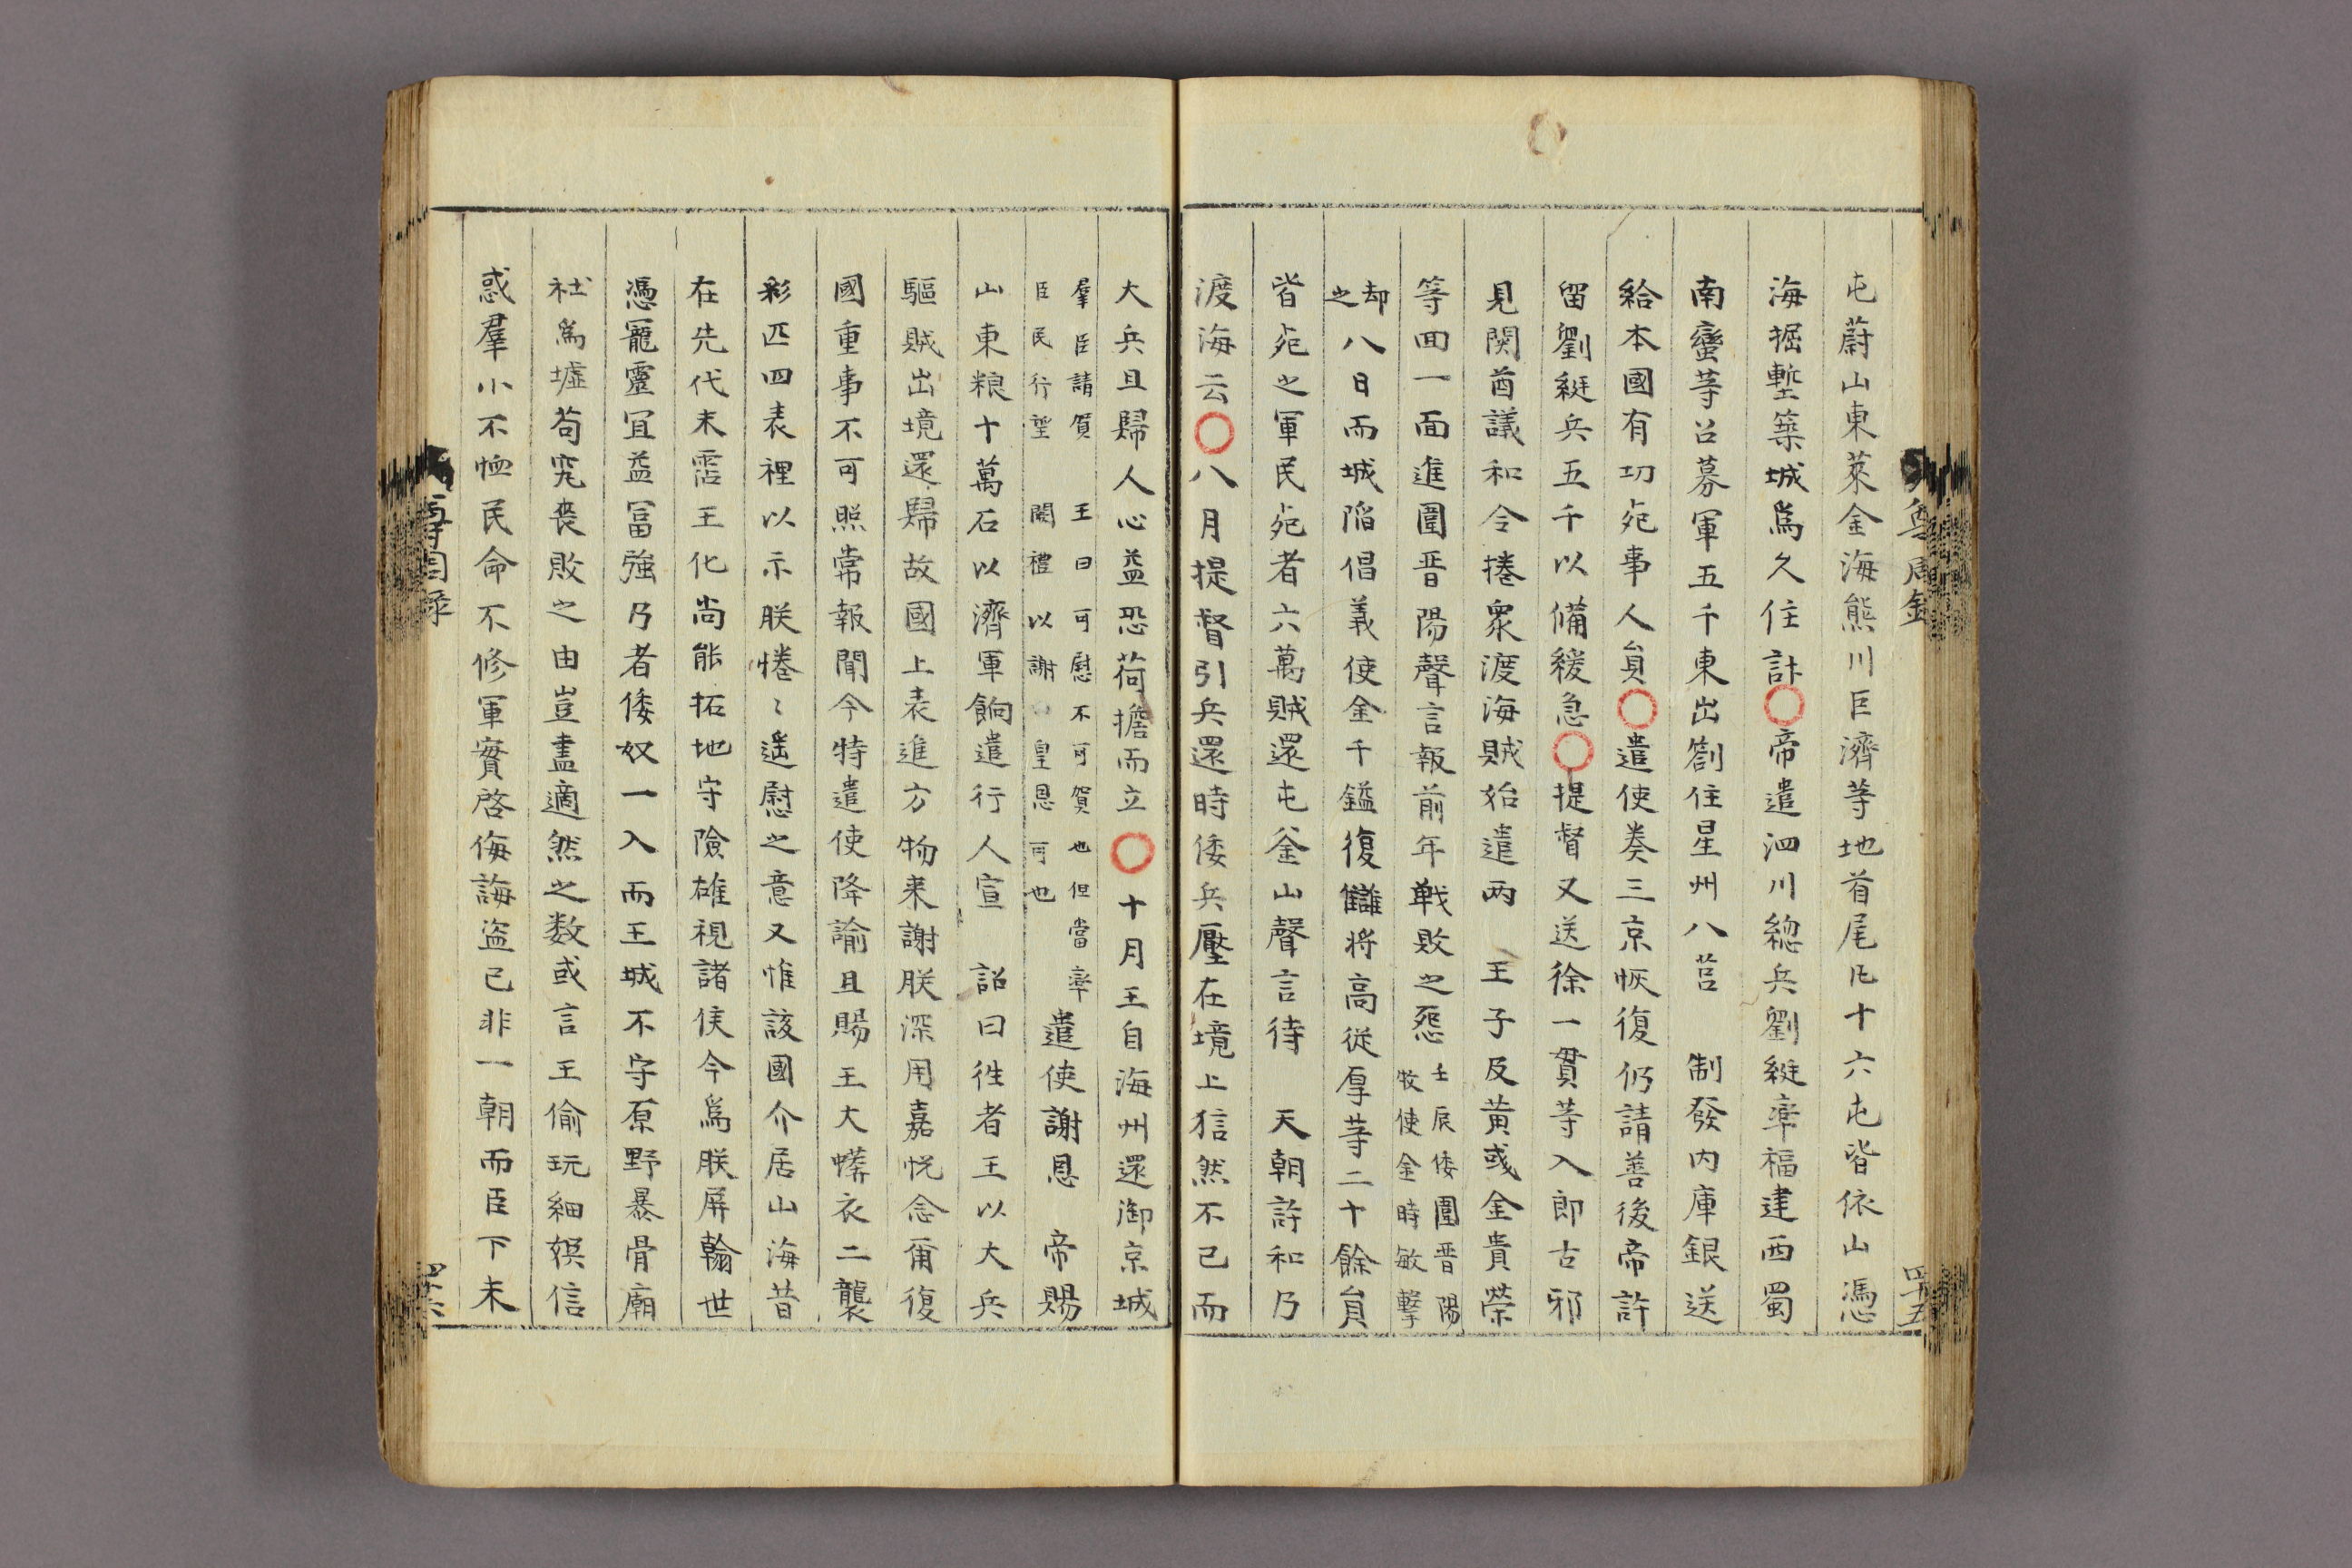 尊周錄
四十五
屯蔚山東萊金海熊川巨濟等地首尾凡十六屯皆依山馮
海掘塹築城爲久住計○帝遣泗川緫兵劉綎率福建西蜀
南蠻等召募軍五千東出劄住星州八莒 制發內庫銀送
給本國有功死事人負○遣使奏三京恢復仍請善後帝許
留劉綎兵五千以備緩急○提督又送徐一貫等入郎古邪
見関酋議和令捲衆渡海賊始遣两 王子及黃彧金貴榮
等回一面進圍晋陽聲言報前年戦敗之惡
壬辰倭圍晋陽
牧使金時敏擊
却
之
八日而城陷倡義使金千鎰復讎将高從厚等二十餘負
皆死之軍民死者六萬賊還屯釜山聲言待 天朝許和乃
渡海云○八月提督引兵還時倭兵壓在境上猘然不已而
大兵且歸人心益恐荷擔而立○十月王自海州還御京城
羣臣請賀 王曰可慰不可賀也但當率
臣民行望 闕禮以謝 皇恩可也
遣使謝恩 帝賜
山東粮十萬石以濟軍餉遣行人宣 詔曰徃者王以大兵
驅賊出境還歸故國上表進方物来謝朕深用嘉悅念爾復
國重事不可照常報聞今特遣使降諭且賜王大蟒衣二襲
彩匹四表裡以示朕惓〻遥慰之意又惟該國介居山海昔
在先代末霑王化尚能拓地守險雄視諸侯今爲朕屏翰世
憑寵靈宜益冨強乃者倭奴一入而王城不守原野暴骨廟
社爲墟苟究喪敗之由豈盡適然之数或言王偷玩細娛信
惑羣小不恤民命不修軍實啓侮誨盜已非一朝而臣下未
尊周錄
四十六